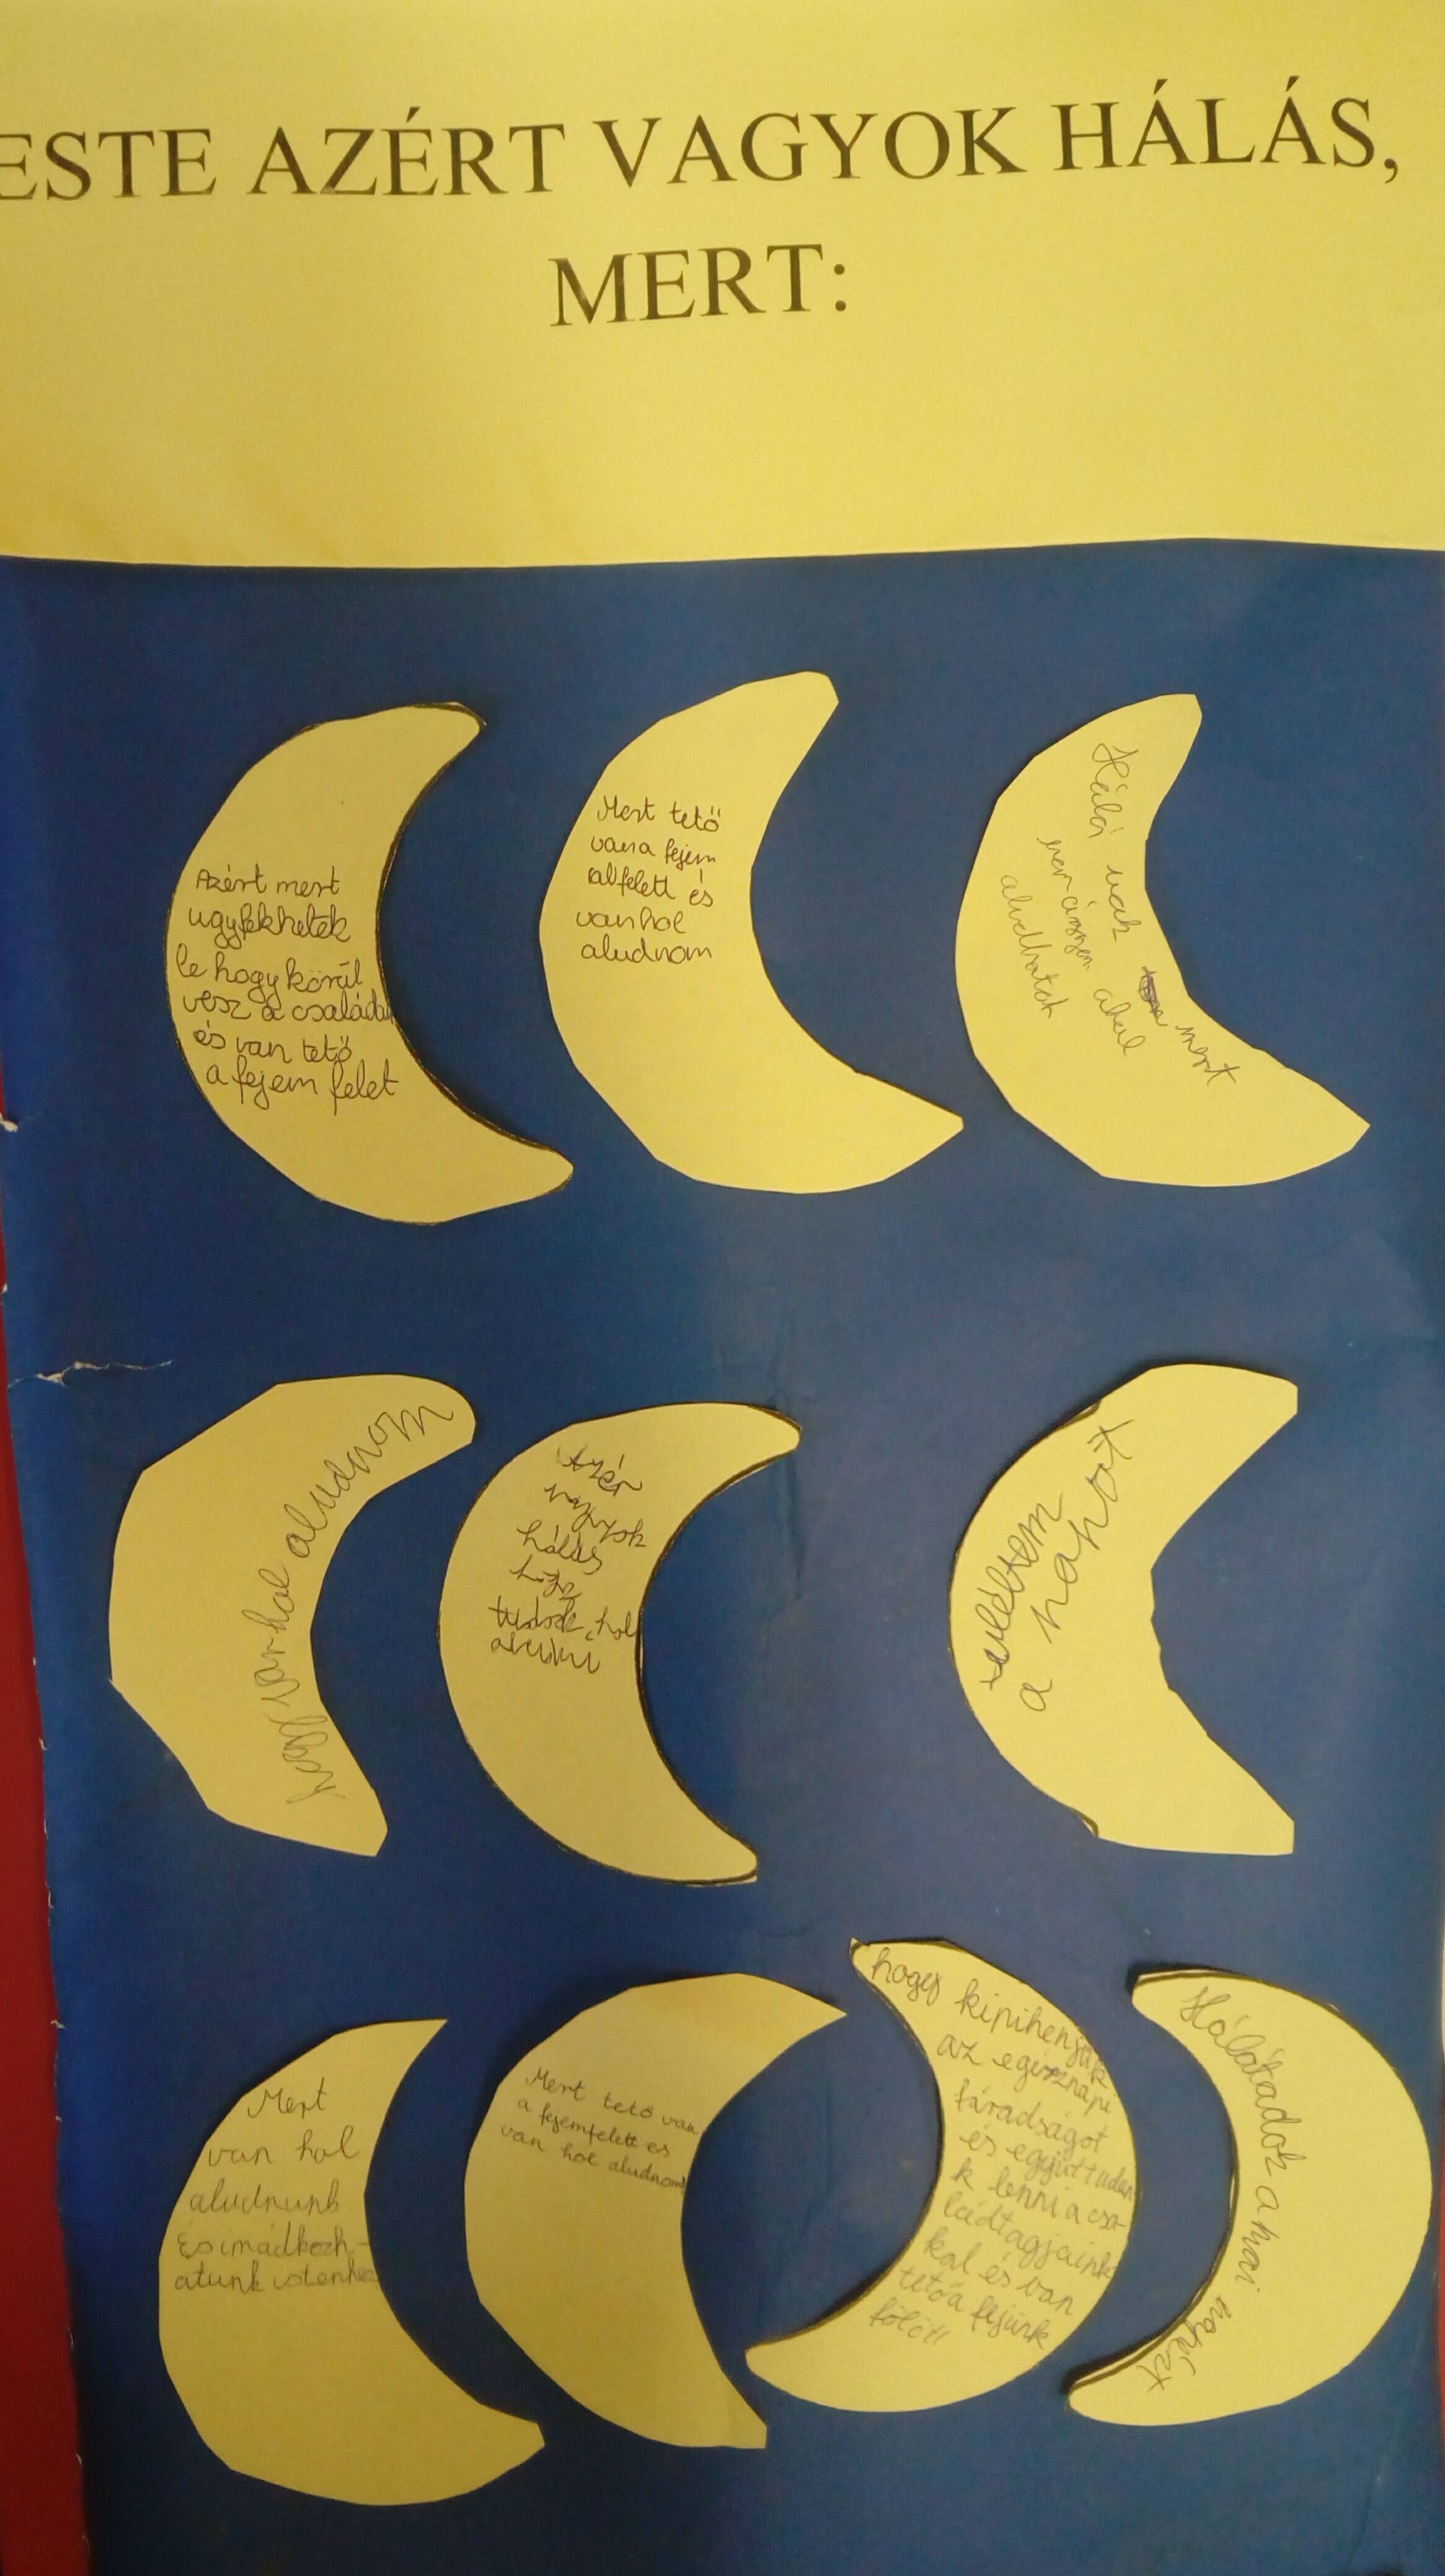 ESTE AZÉRT VAGYOK HÁLÁS,
MERT:
Azért mert
ugyfekhetek
le hogy körül
vesz a családom
és van tető
a fejem felet
Mert tető
van a fejem
felett és
van hol
aludnom
Hálá vak mert
van ahol
aludhatok
hogy van hol aludnom
Azér
vagyok
hálás
hogy
tudok hol
aludni
túléltem
a napot
Mert
van hol
aludnunk
És imádkozh-
atunk istenhez
Mert tető van
a fejemfelett es
van hol aludnom!
hogy kipihenjük
az egésznapi
fáradságot
és együttudun
k lenni a csa-
ládtagjaink
kal és van
tető a fejünk
fölött
Hálátadok a mai napért